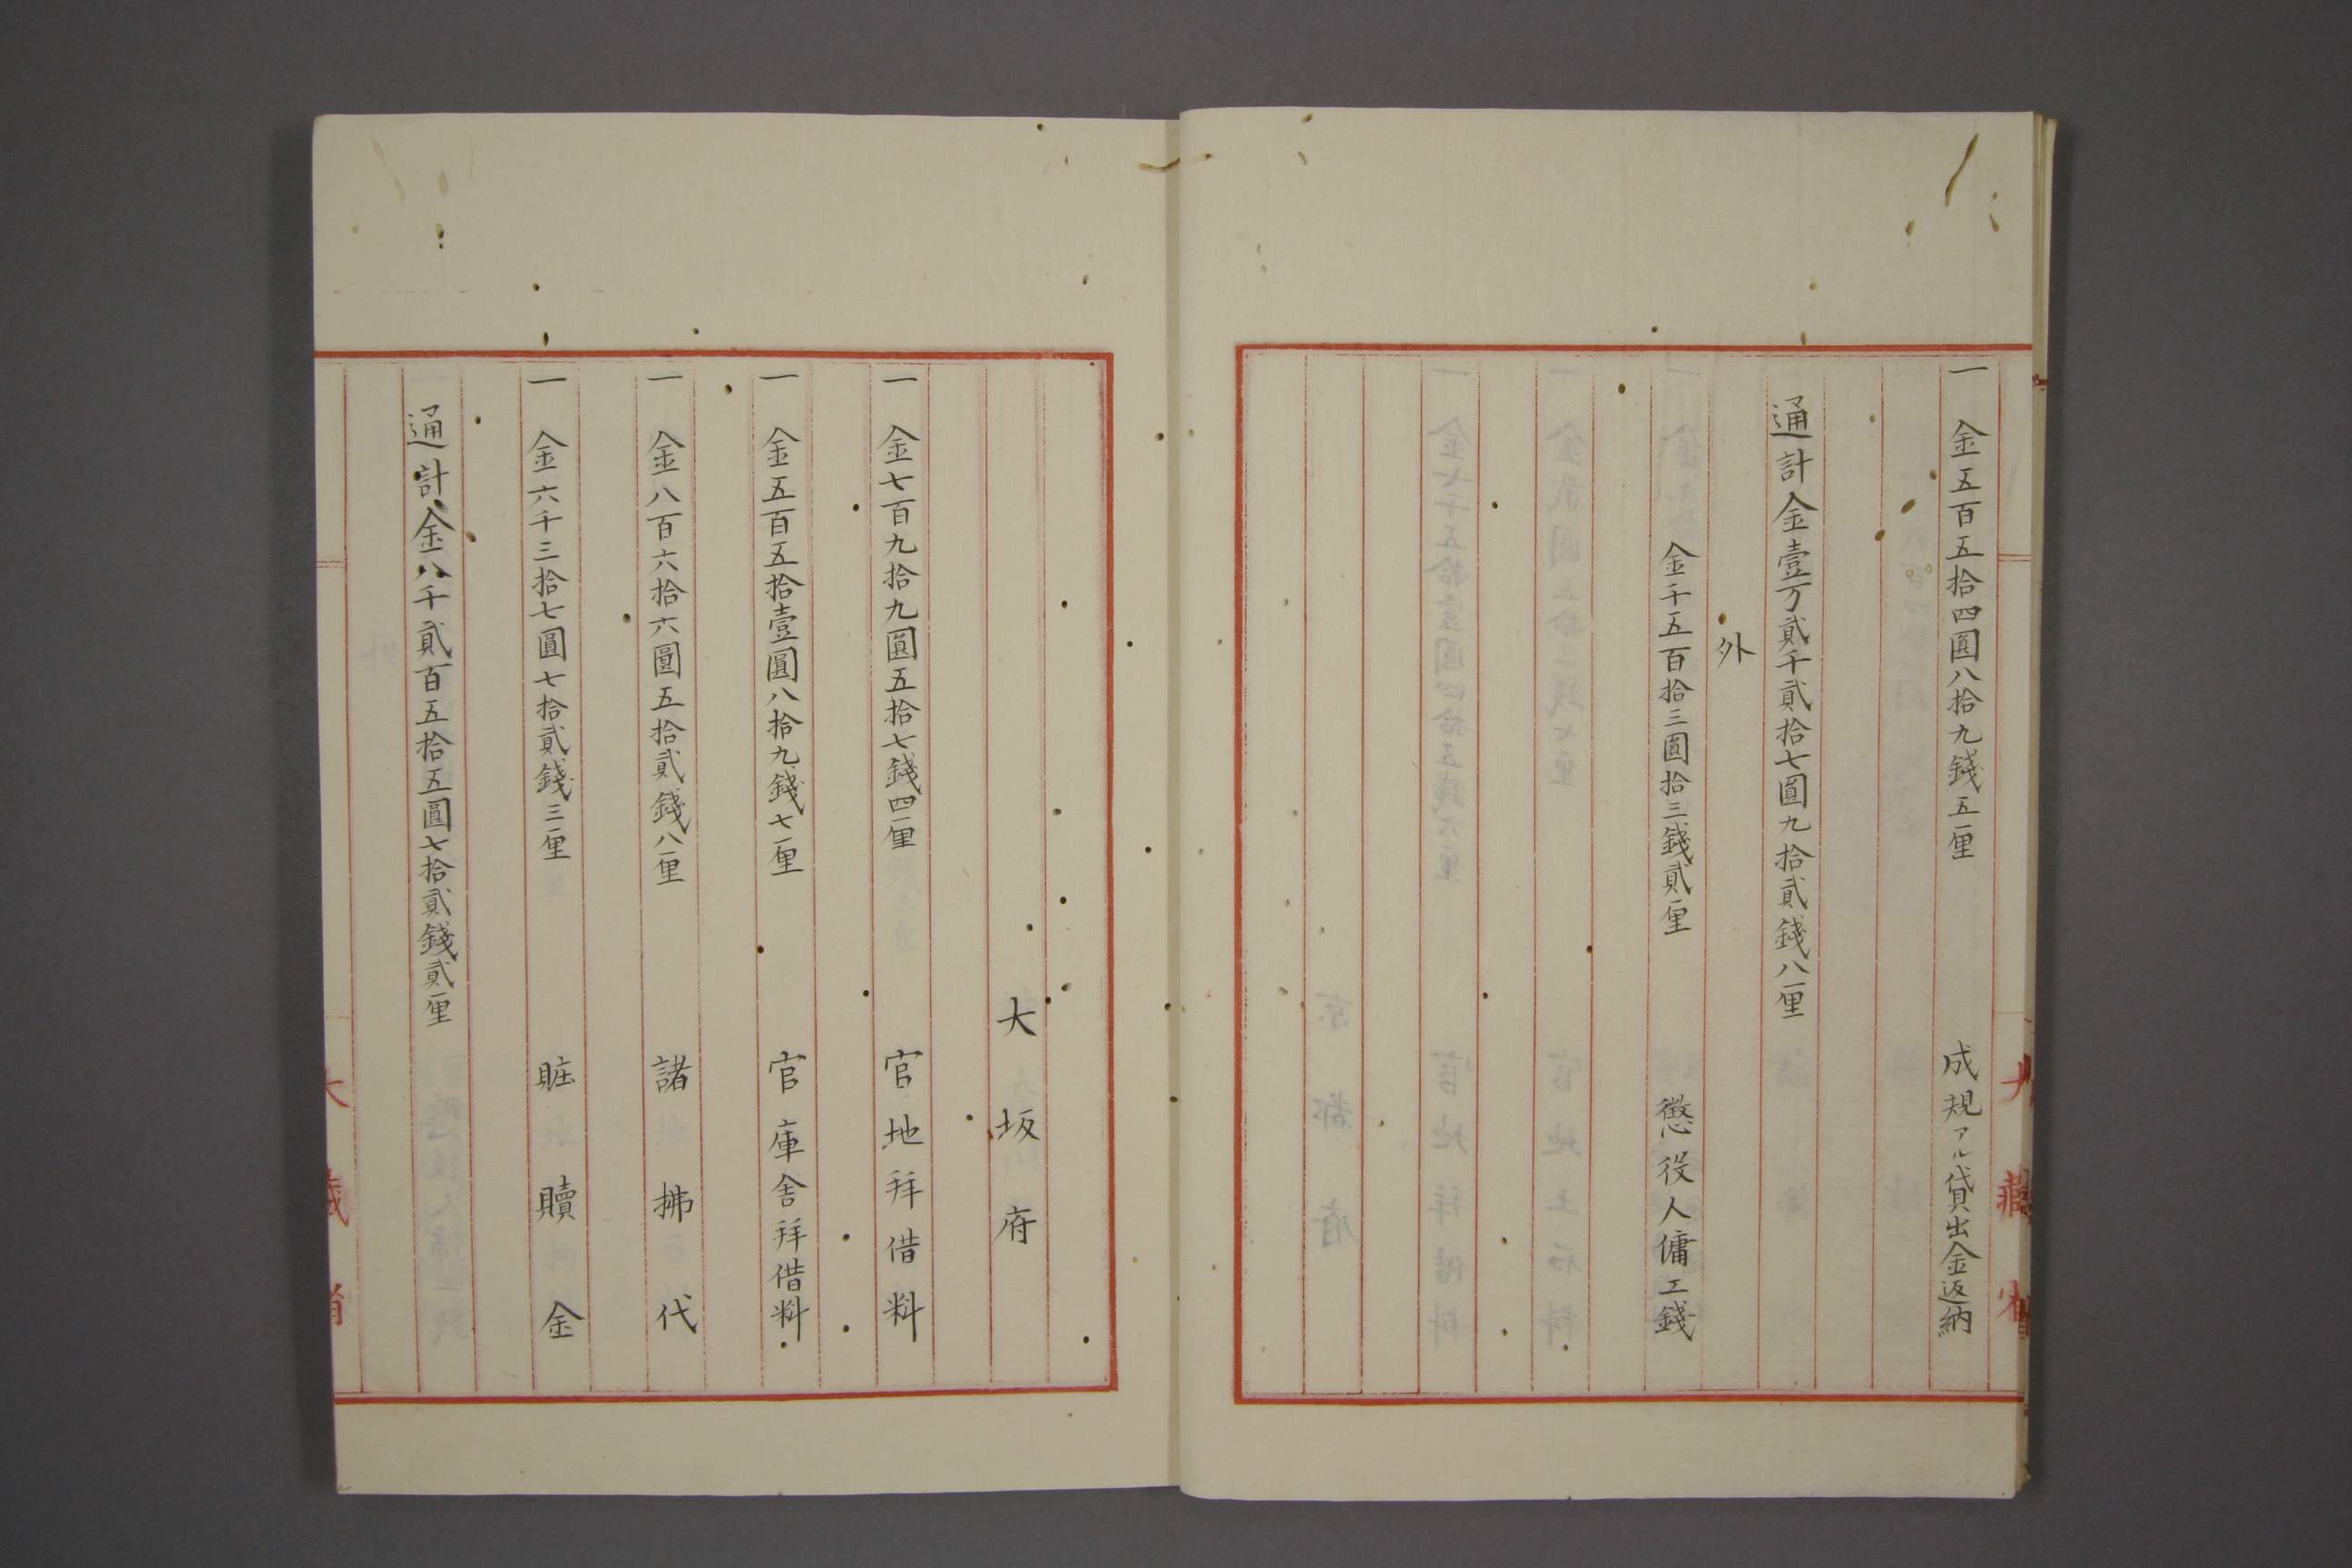 一 金五百五拾四圓八拾九錢五厘 成規アル貸出金返納
通計金壹万貳千貳拾七圓九拾貳錢八厘
外
金千五百拾三圓拾三錢貳厘 懲役人傭工錢
大藏省
大坂府
一 金七百九拾九圓五拾七錢四厘 官地拜借料
一 金五百五拾壹圓八拾九錢七厘 官庫舎拜借料
一 金八百六拾六圓五拾貳錢八厘 諸拂代
一 金六千三拾七圓七拾貳錢三厘 賍贖金
通計金八千貳百五拾五圓七拾貳錢貳厘
大藏省